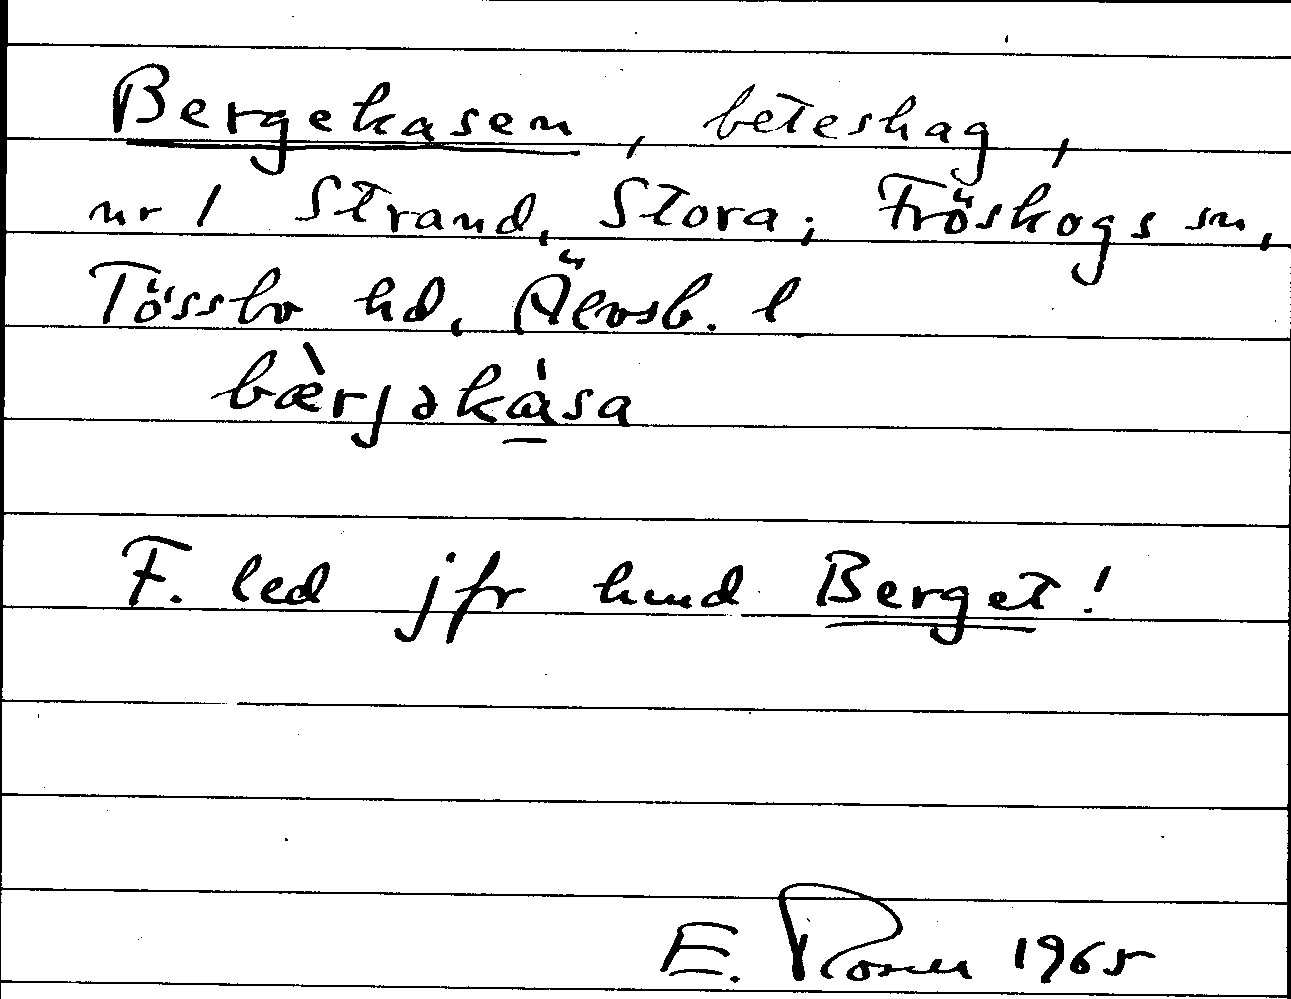 Bergekasen, beteshag,
nr 1 Strand, Stora; Fröskogs sn,
Tössbo hd, Älvsb. l
bæ̀rjəkàsa
F. led jfr hmd Berget!
E. Rosen 1965